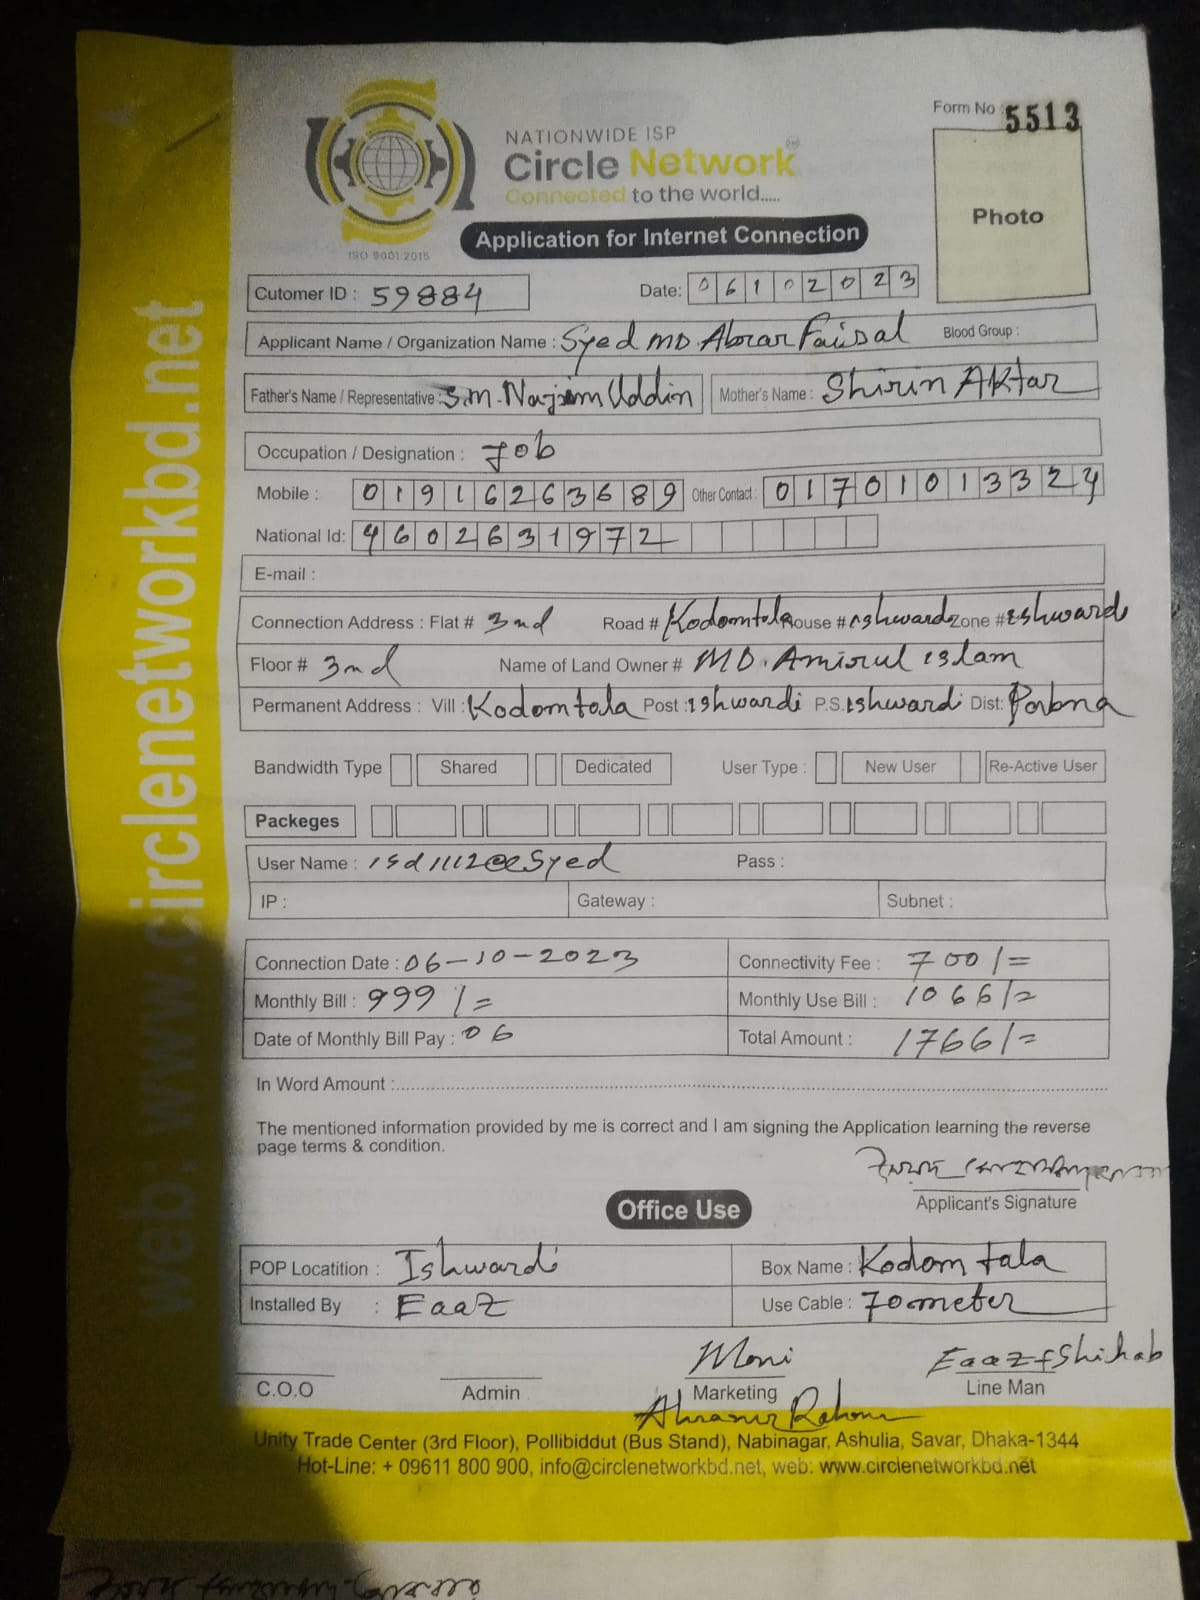 Form No 5513
NATIONWIDE ISP
Circle Network
Connected to the world.....
ISO 9001:2015
Application for Internet Connection
Photo
Cutomer ID : 59884 Date: 06102023
Applicant Name / Organization Name : Syed MD. Abrar Faisal Blood Group :
Father's Name / Representative : S.M. Najim Uddin Mother's Name : Shirin Aktar
Occupation / Designation : Job
Mobile : 01916263689 Other Contact : 01701013324
National Id: 4602631972
E-mail :
Connection Address : Flat # 3nd Road # Kodomtala House # ishwardi Zone # ishwardi
Floor # 3nd Name of Land Owner # MD. Amirul islam
Permanent Address : Vill : Kodomtala Post : ishwardi P.S. ishwardi Dist: Pabna
Bandwidth Type Shared Dedicated User Type : New User Re-Active User
Packeges
User Name : Pass :
IP : Gateway : Subnet :
Connection Date : 06-10-2023 Connectivity Fee : 700/=
Monthly Bill : 999/= Monthly Use Bill : 1066/=
Date of Monthly Bill Pay : 06 Total Amount : 1766/=
In Word Amount :
The mentioned information provided by me is correct and I am signing the Application learning the reverse
page terms & condition.
Applicant's Signature
Office Use
POP Locatition : Ishwardi Box Name : Kodomtala
Installed By : Eaaz Use Cable : 70 meter
Moni Eaaz + Shihab
C.O.O Admin Marketing Line Man
Unity Trade Center (3rd Floor), Pollibiddut (Bus Stand), Nabinagar, Ashulia, Savar, Dhaka-1344
Hot-Line: + 09611 800 900, info@circlenetworkbd.net, web: www.circlenetworkbd.net
web: www.circlenetworkbd.net